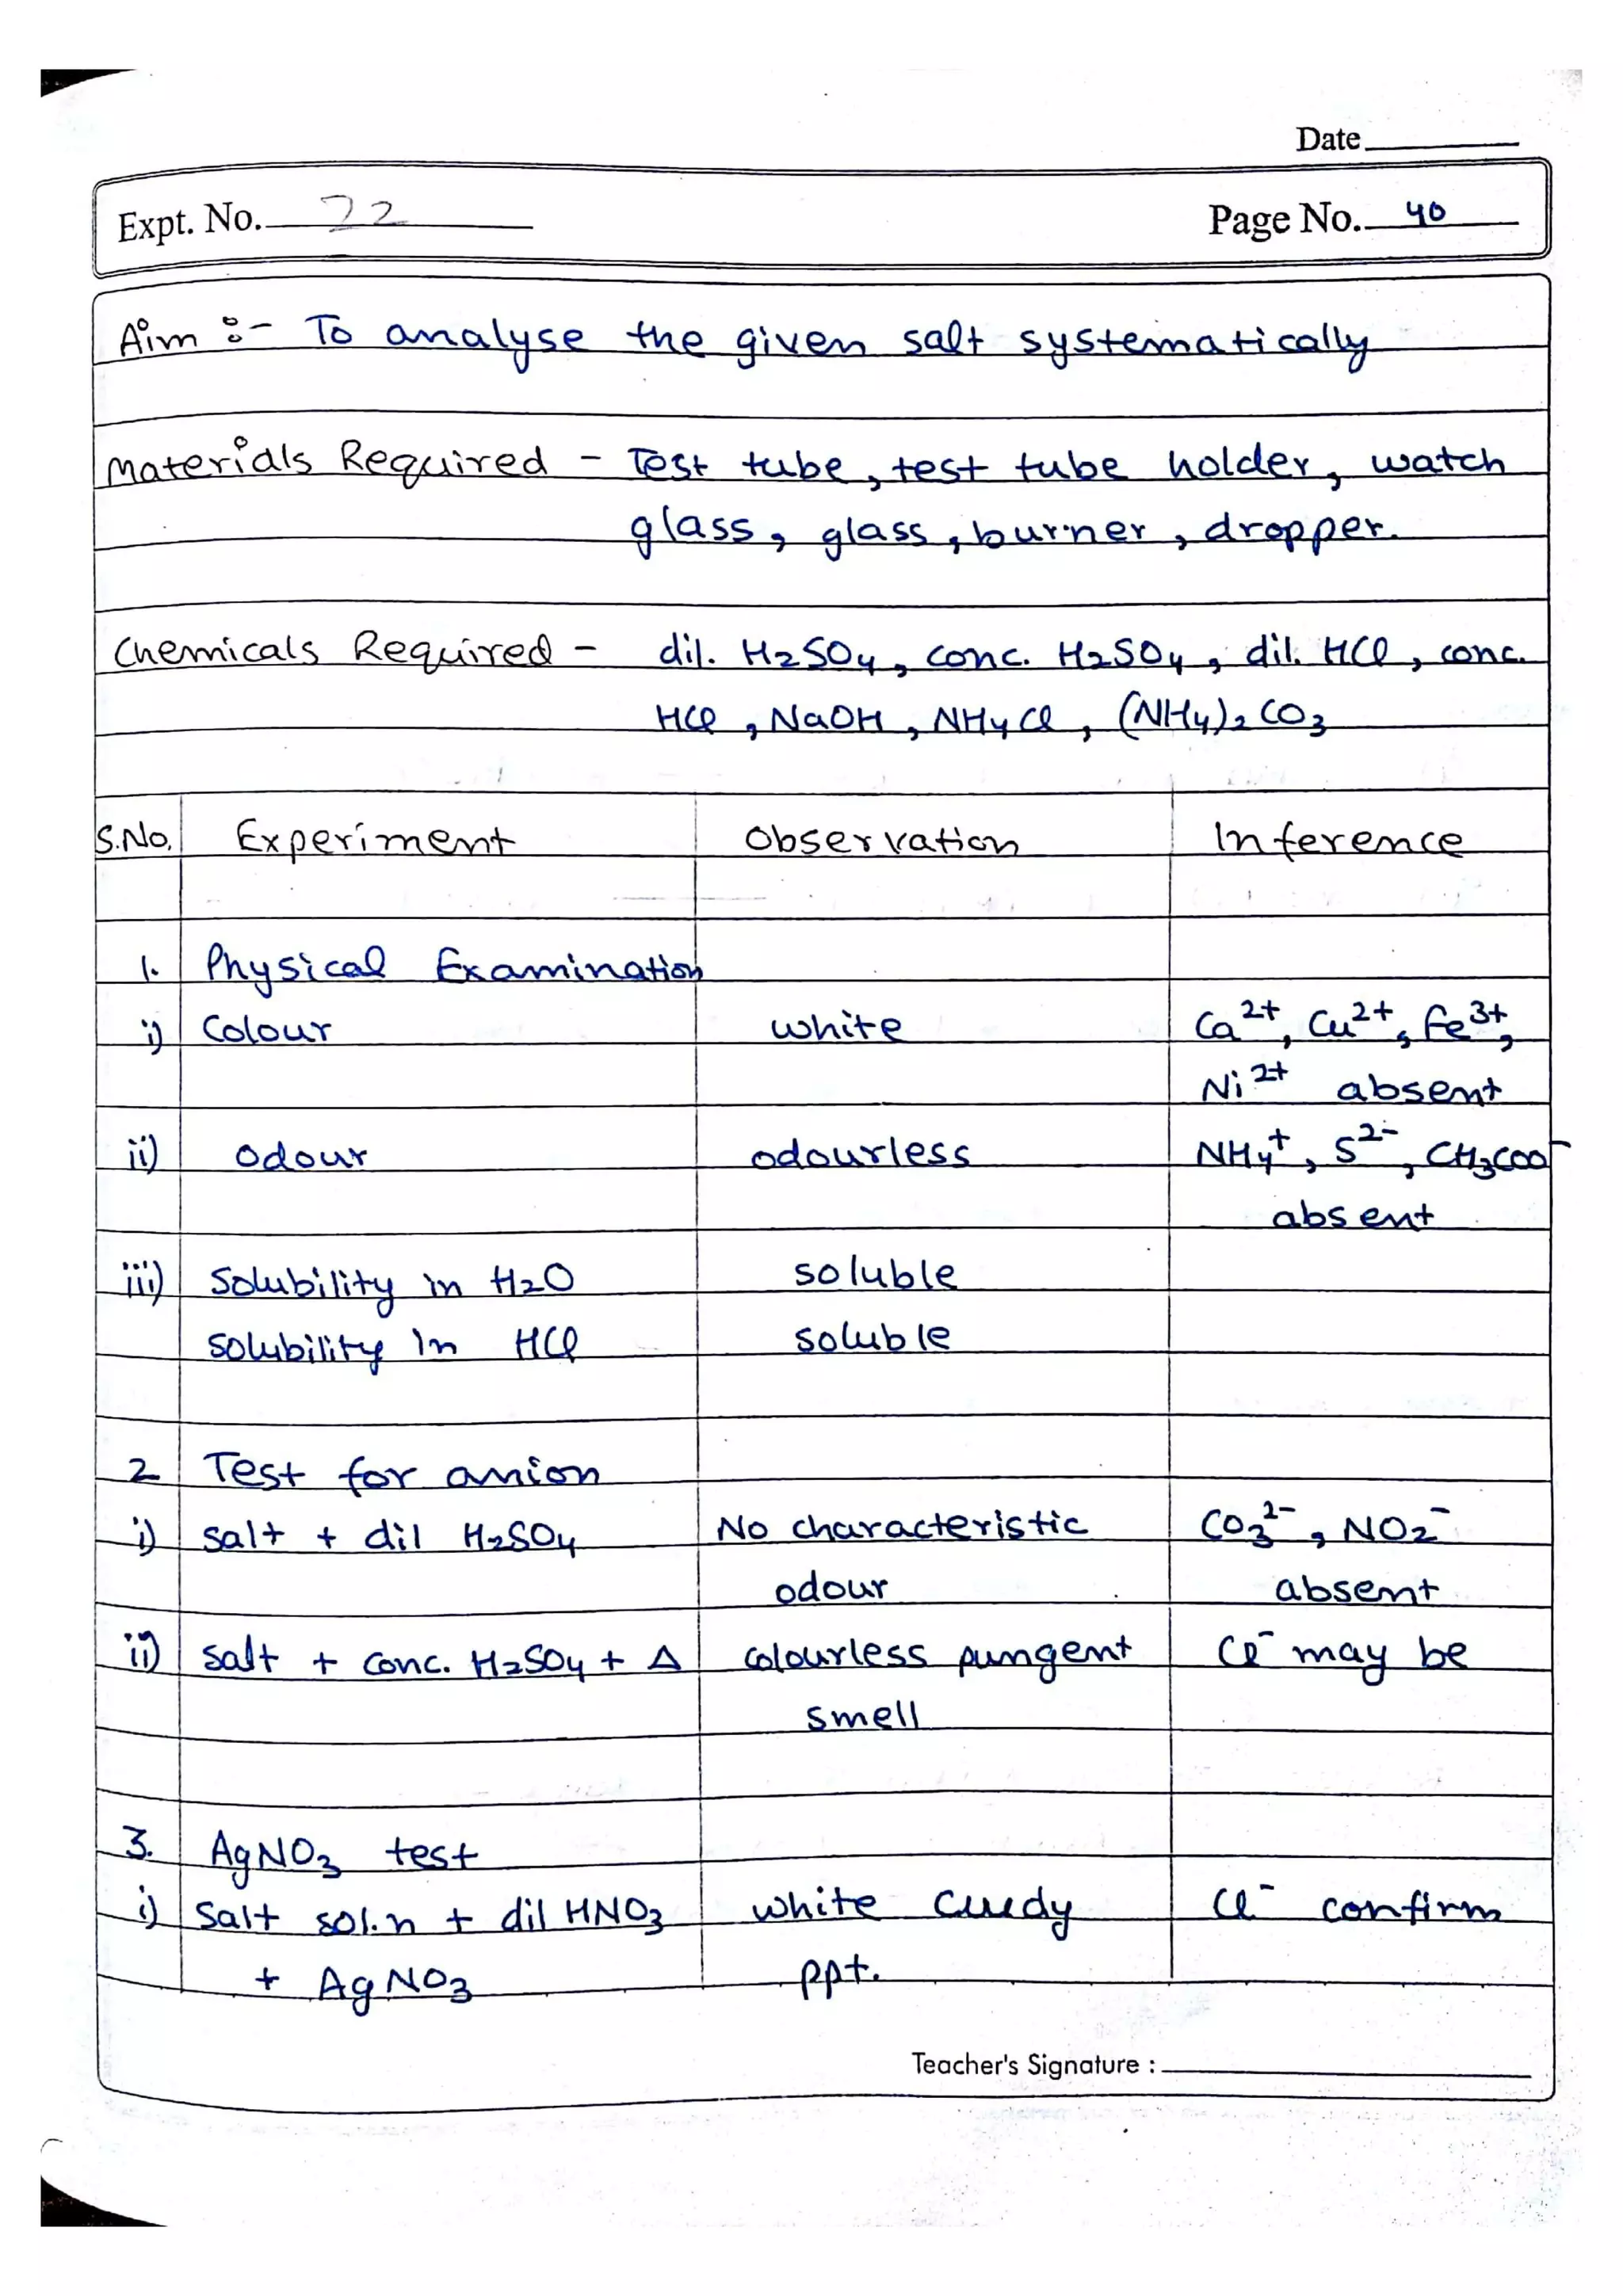 Date
Expt. No. 22
Page No. 40
Aim :- To analyse the given salt systematically
Materials Required - Test tube, test tube holder, watch
glass, glass, burner, dropper.
Chemicals Required - dil. H2SO4, conc. H2SO4, dil. HCl, conc.
HCl, NaOH, NH4Cl, (NH4)2CO3
S.No. Experiment Observation Inference
1. Physical Examination
i) Colour white Ca2+, Cu2+, Fe3+,
Ni2+ absent
ii) odour odourless NH4+, S2-, CH3COO-
absent
iii) Solubility in H2O soluble
solubility in HCl soluble
2 Test for anion
i) salt + dil H2SO4 No characteristic CO32-, NO2-
odour absent
ii) salt + conc. H2SO4 + Δ colourless pungent Cl- may be
smell
3. AgNO3 test
i) Salt sol.n + dil HNO3 white Curdy Cl- confirm
+ AgNO3 ppt.
Teacher's Signature :